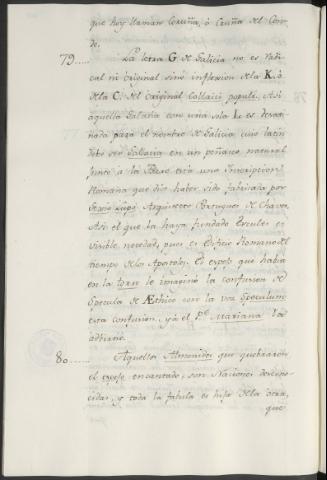 que hoy llaman Coruña, ò Cruña del Con-
de.
79..... La letra G de Galicia no es radi-
cal ni original sino inflexion de la K. ò
de la C. del original Collaici populi. Asi
aquella Galaria con una sola L. es
para el nombre de Galicia cuio latin
debe ser Gallacia en un peñasco natural
junto à la Torre està una Inscripcion
Romana que dice haber sido fabricada por
Sevio Lupo Arquitecto Portugues de Chaves,
Asi el que la haya fundado Ercules es
risible necedad, pues es Edificio Romano de
tiempo de los Apostoles. El espejo que habia
en la torre le imaginò la confusion de
Specula de Æthico con la voz Speculum
esta confusion, ya el Pe. Mariana la
advirtio.
80..... Aquellos Almonides que quebraron
el espejo encantado, son Naciones descono-
cidas, y toda la fabula es hija de la otra,
que